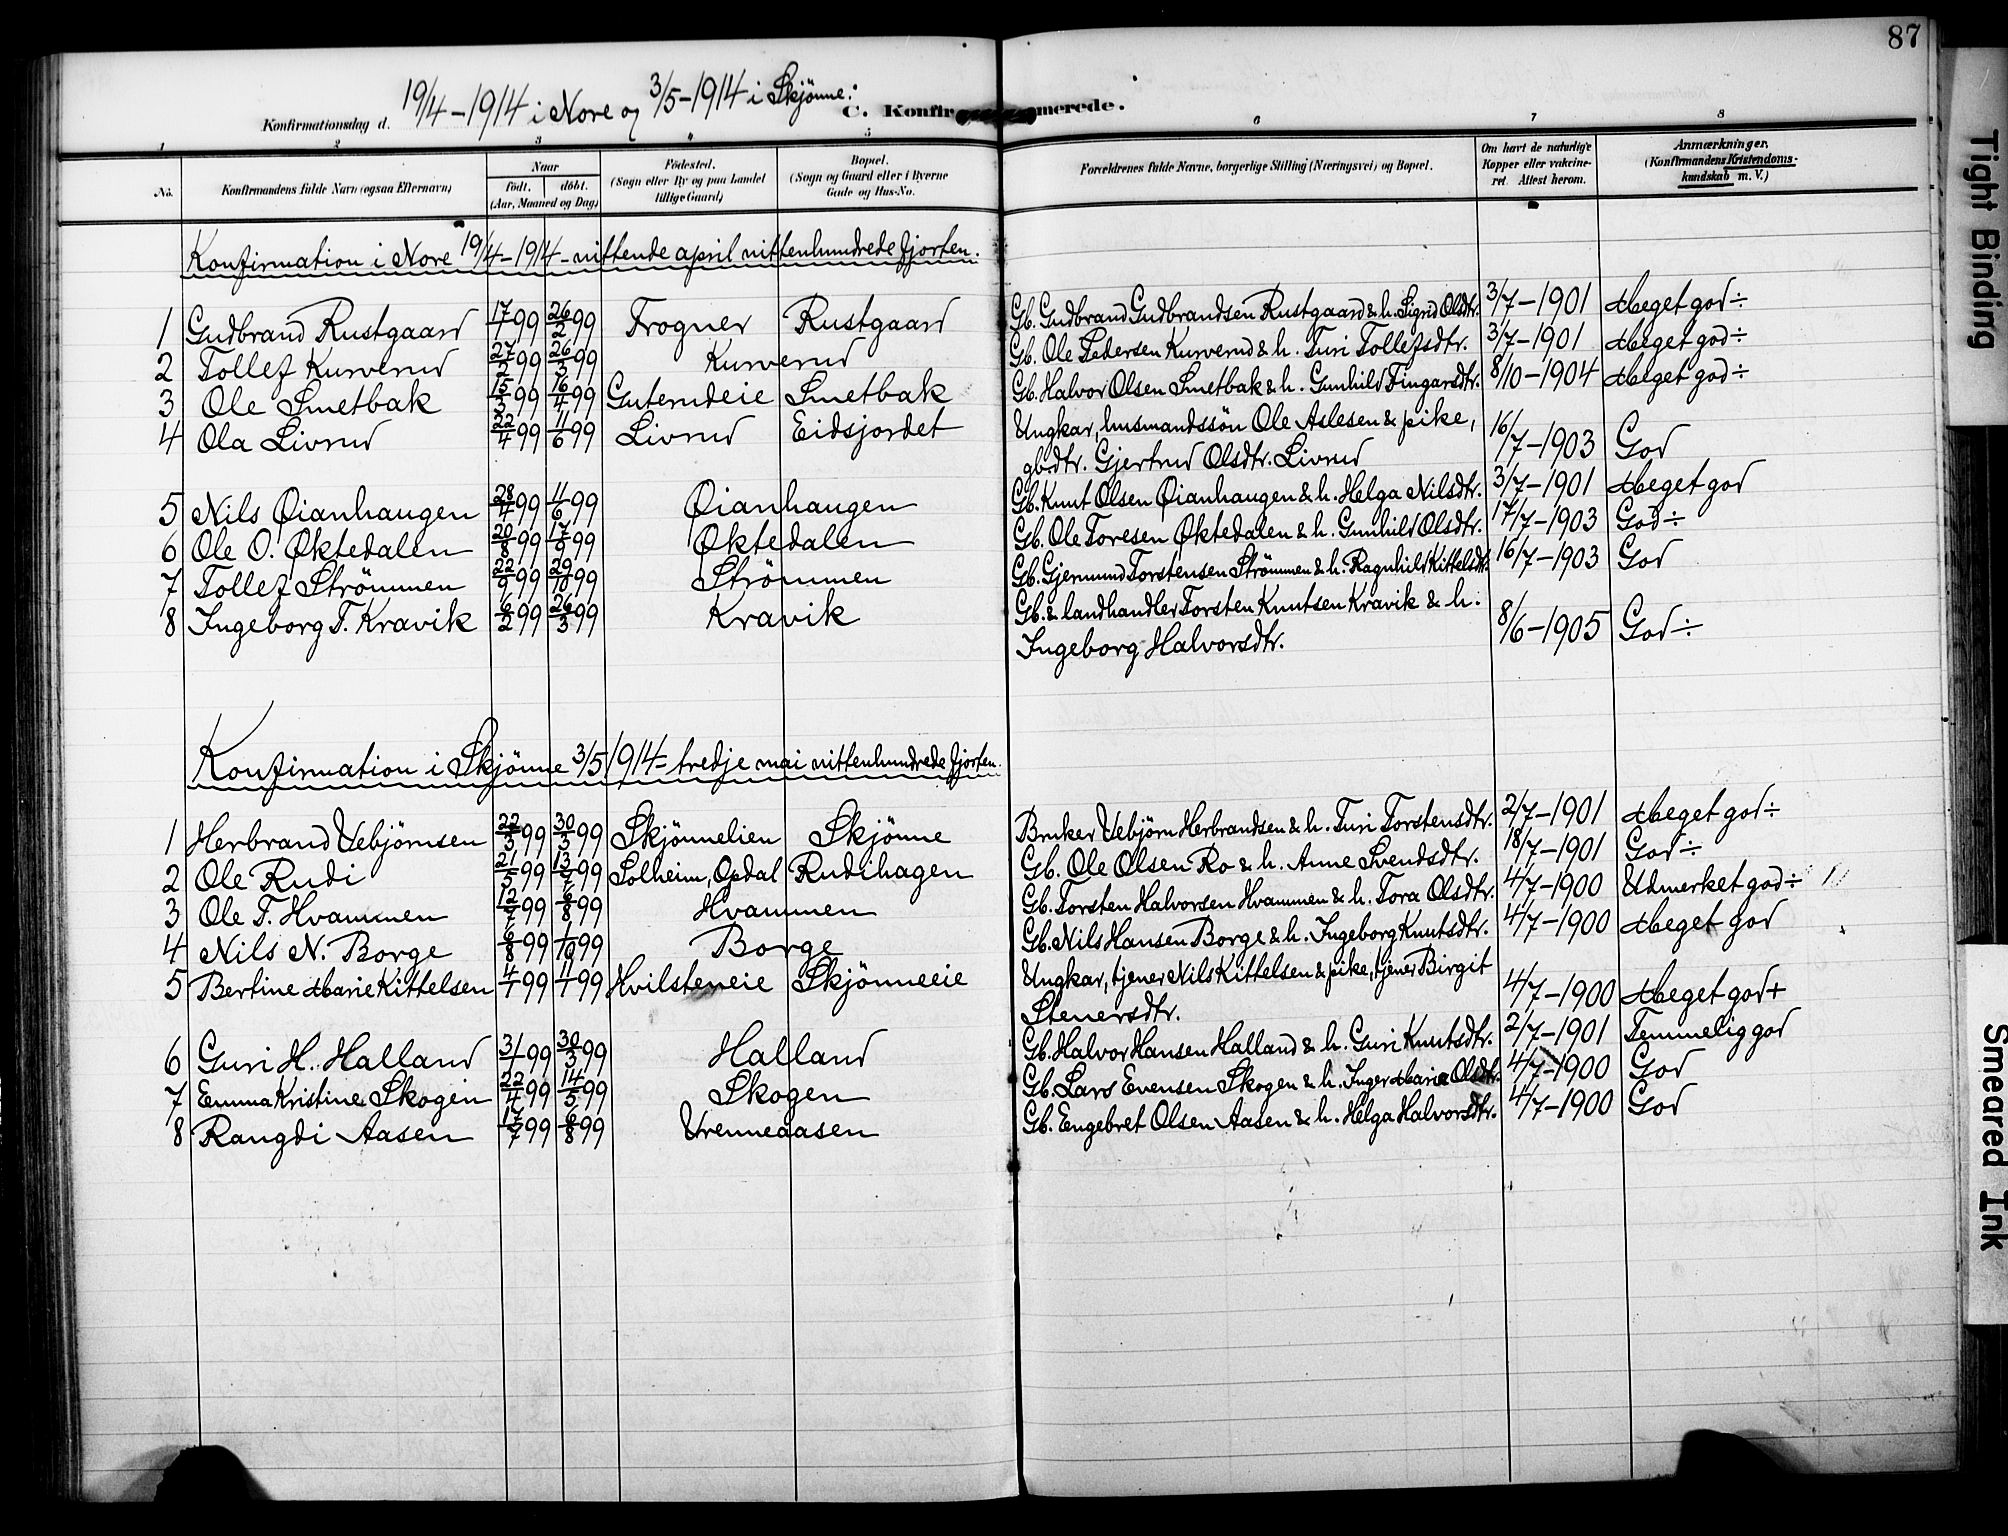 87
19/4-1914 i Nore og 3/5-1914 i Skjønne:
Konfirmationsdag d. C. Konfirmerede.
1 2 3 4 5 6 7 8
No. Konfirmandens fulde Navn (ogsaa Efternavn) Naar født. døbt. (Aar, Maaned og Dag) Fødested. (Sogn eller By og paa Landet tillige Gaard) Bopæl. (Sogn og Gaard eller i Byerne Gade og Hus-No. Forældrenes fulde Navne, borgerlige Stilling (Næringsvei) og Bopæl. Om havt de naturlige Kopper eller vakcineret. Attest herom. Anmærkninger. (Konfirmandens Kristendomskundskab m. V.)
Konfirmation i Nore 19/4-1914 - nittende april nittenhundrede fjorten.
1 Gudbrand Rustgaard 17/1 99 26/2 99 Frogner Rustgaard Gb. Gudbrand Gudbrandsen Rustgaard & h. Sigrid Olsdtr. 3/7-1901 Meget god ÷
2 Tollef Kurverud 27/2 99 26/3 99 Kurverud Gb. Ole Pedersen Kurverud & h. Turi Tollefsdtr. 3/7-1901 Meget god ÷
3 Ole Smetbak 15/3 99 16/4 99 Guterudeie Smetbak Gb. Halvor Olsen Smetbak & h. Gunhild Fingarsdtr. 8/10-1904 Meget god ÷
4 Ola Livrud 22/4 99 11/6 99 Livrud Eidsjordet Ungkar, husmandssøn Ole Aslesen & pike,
gbdtr. Gjertrud Olsdtr. Livrud 16/7-1903 God
5 Nils Øianhaugen 28/4 99 11/6 99 Øianhaugen Gb. Knut Olsen Øianhaugen & h. Helga Nilsdtr. 3/7-1901 Meget god
6 Ole O. Øktedalen 20/8 99 17/9 99 Øktedalen Gb. Ole Toresen Øktedalen & h. Gunhild Olsdtr. 17/7-1903 God ÷
7 Tollef Strömmen 22/9 99 29/10 99 Strömmen Gb. Gjermund Torstensen Strömmen & h. Ragnhild Kittelsdtr. 16/7-1903 God
8 Ingeborg T. Kravik 6/2 99 26/3 99 Kravik Gb. & landhandler Torsten Knutsen Kravik & h.
Ingeborg Halvorsdtr. 8/6-1905 God ÷
Konfirmation i Skjønne 3/5 1914 - tredje mai nittenhundrede fjorten.
1 Herbrand Vebjörnsen 22/3 99 30/3 99 Skjønnelien Skjønne Bruker Vebjörn Herbrandsen & h. Turi Torstensdtr. 2/7-1901 Meget god ÷
2 Ole Rudi 21/5 99 13/7 99 Solheim, Opdal Rudihagen Gb. Ole Olsen Ro & h. Anne Svendsdtr. 18/7-1901 God ÷
3 Ole T. Hvammen 12/7 99 6/8 99 Hvammen Gb. Torsten Halvorsen Hvammen & h. Tora Olsdtr. 4/7-1900 Udmerket god ÷
4 Nils N. Borge 6/8 99 1/10 99 Borge Gb. Nils Hansen Borge & h. Ingeborg Knutsdtr. 4/7-1900 Meget god
5 Bertine Marie Kittelsen 4/1 99 11/1 99 Hvilsteneie Skjønneeie Ungkar, tjener Nils Kittelsen & pike, tjener Birgit
Stenersdtr. 4/7-1900 Meget god +
6 Guri H. Halland 31/1 99 30/3 99 Halland Gb. Halvor Hansen Halland & h. Guri Knutsdtr. 2/7-1901 Temmelig god
7 Emma Kristine Skogen 22/4 99 14/5 99 Skogen Gb. Lars Evensen Skogen & h. Inger Marie Olsdtr. 4/7-1900 God
8 Rangdi Aasen 17/7 99 6/8 99 Vrenneaasen Gb. Engebret Olsen Aasen & h. Helga Halvorsdtr. 4/7-1900 God
Tight Binding
Smeared Ink